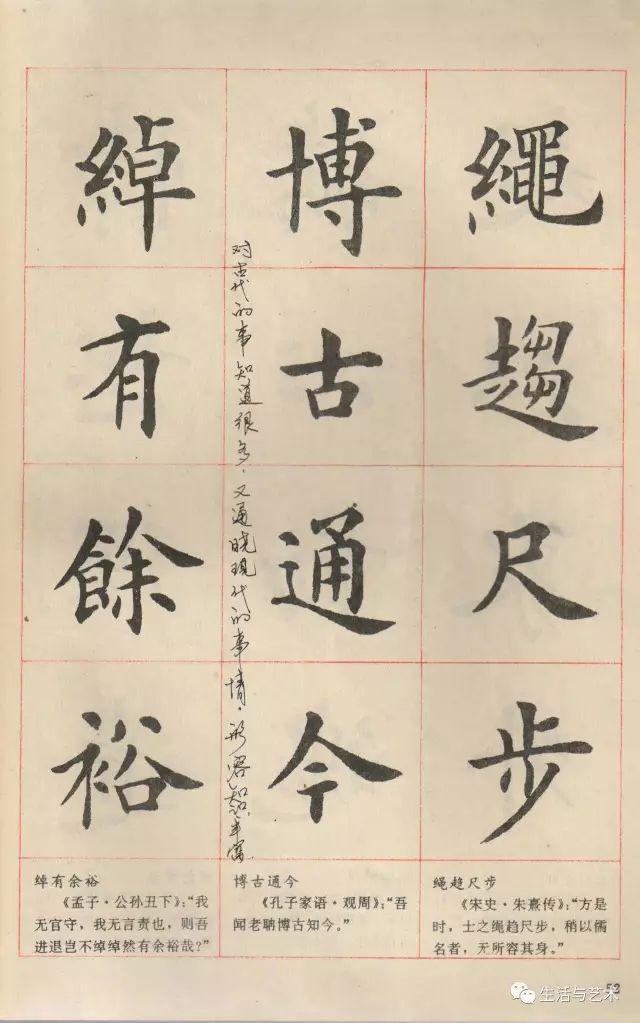 繩趨尺步
博古通今
綽有餘裕
对古代的事知道很多，又通晓现代的事情。形容知识丰富
绳趋尺步
《宋史·朱熹传》：“方是
时，士之绳趋尺步，稍以儒
名者，无所容其身。”
博古通今
《孔子家语·观周》：“吾
闻老聃博古知今。”
绰有余裕
《孟子·公孙丑下》：“我
无官守，我无言责也，则吾
进退岂不绰绰然有余裕哉？”
52
生活与艺术